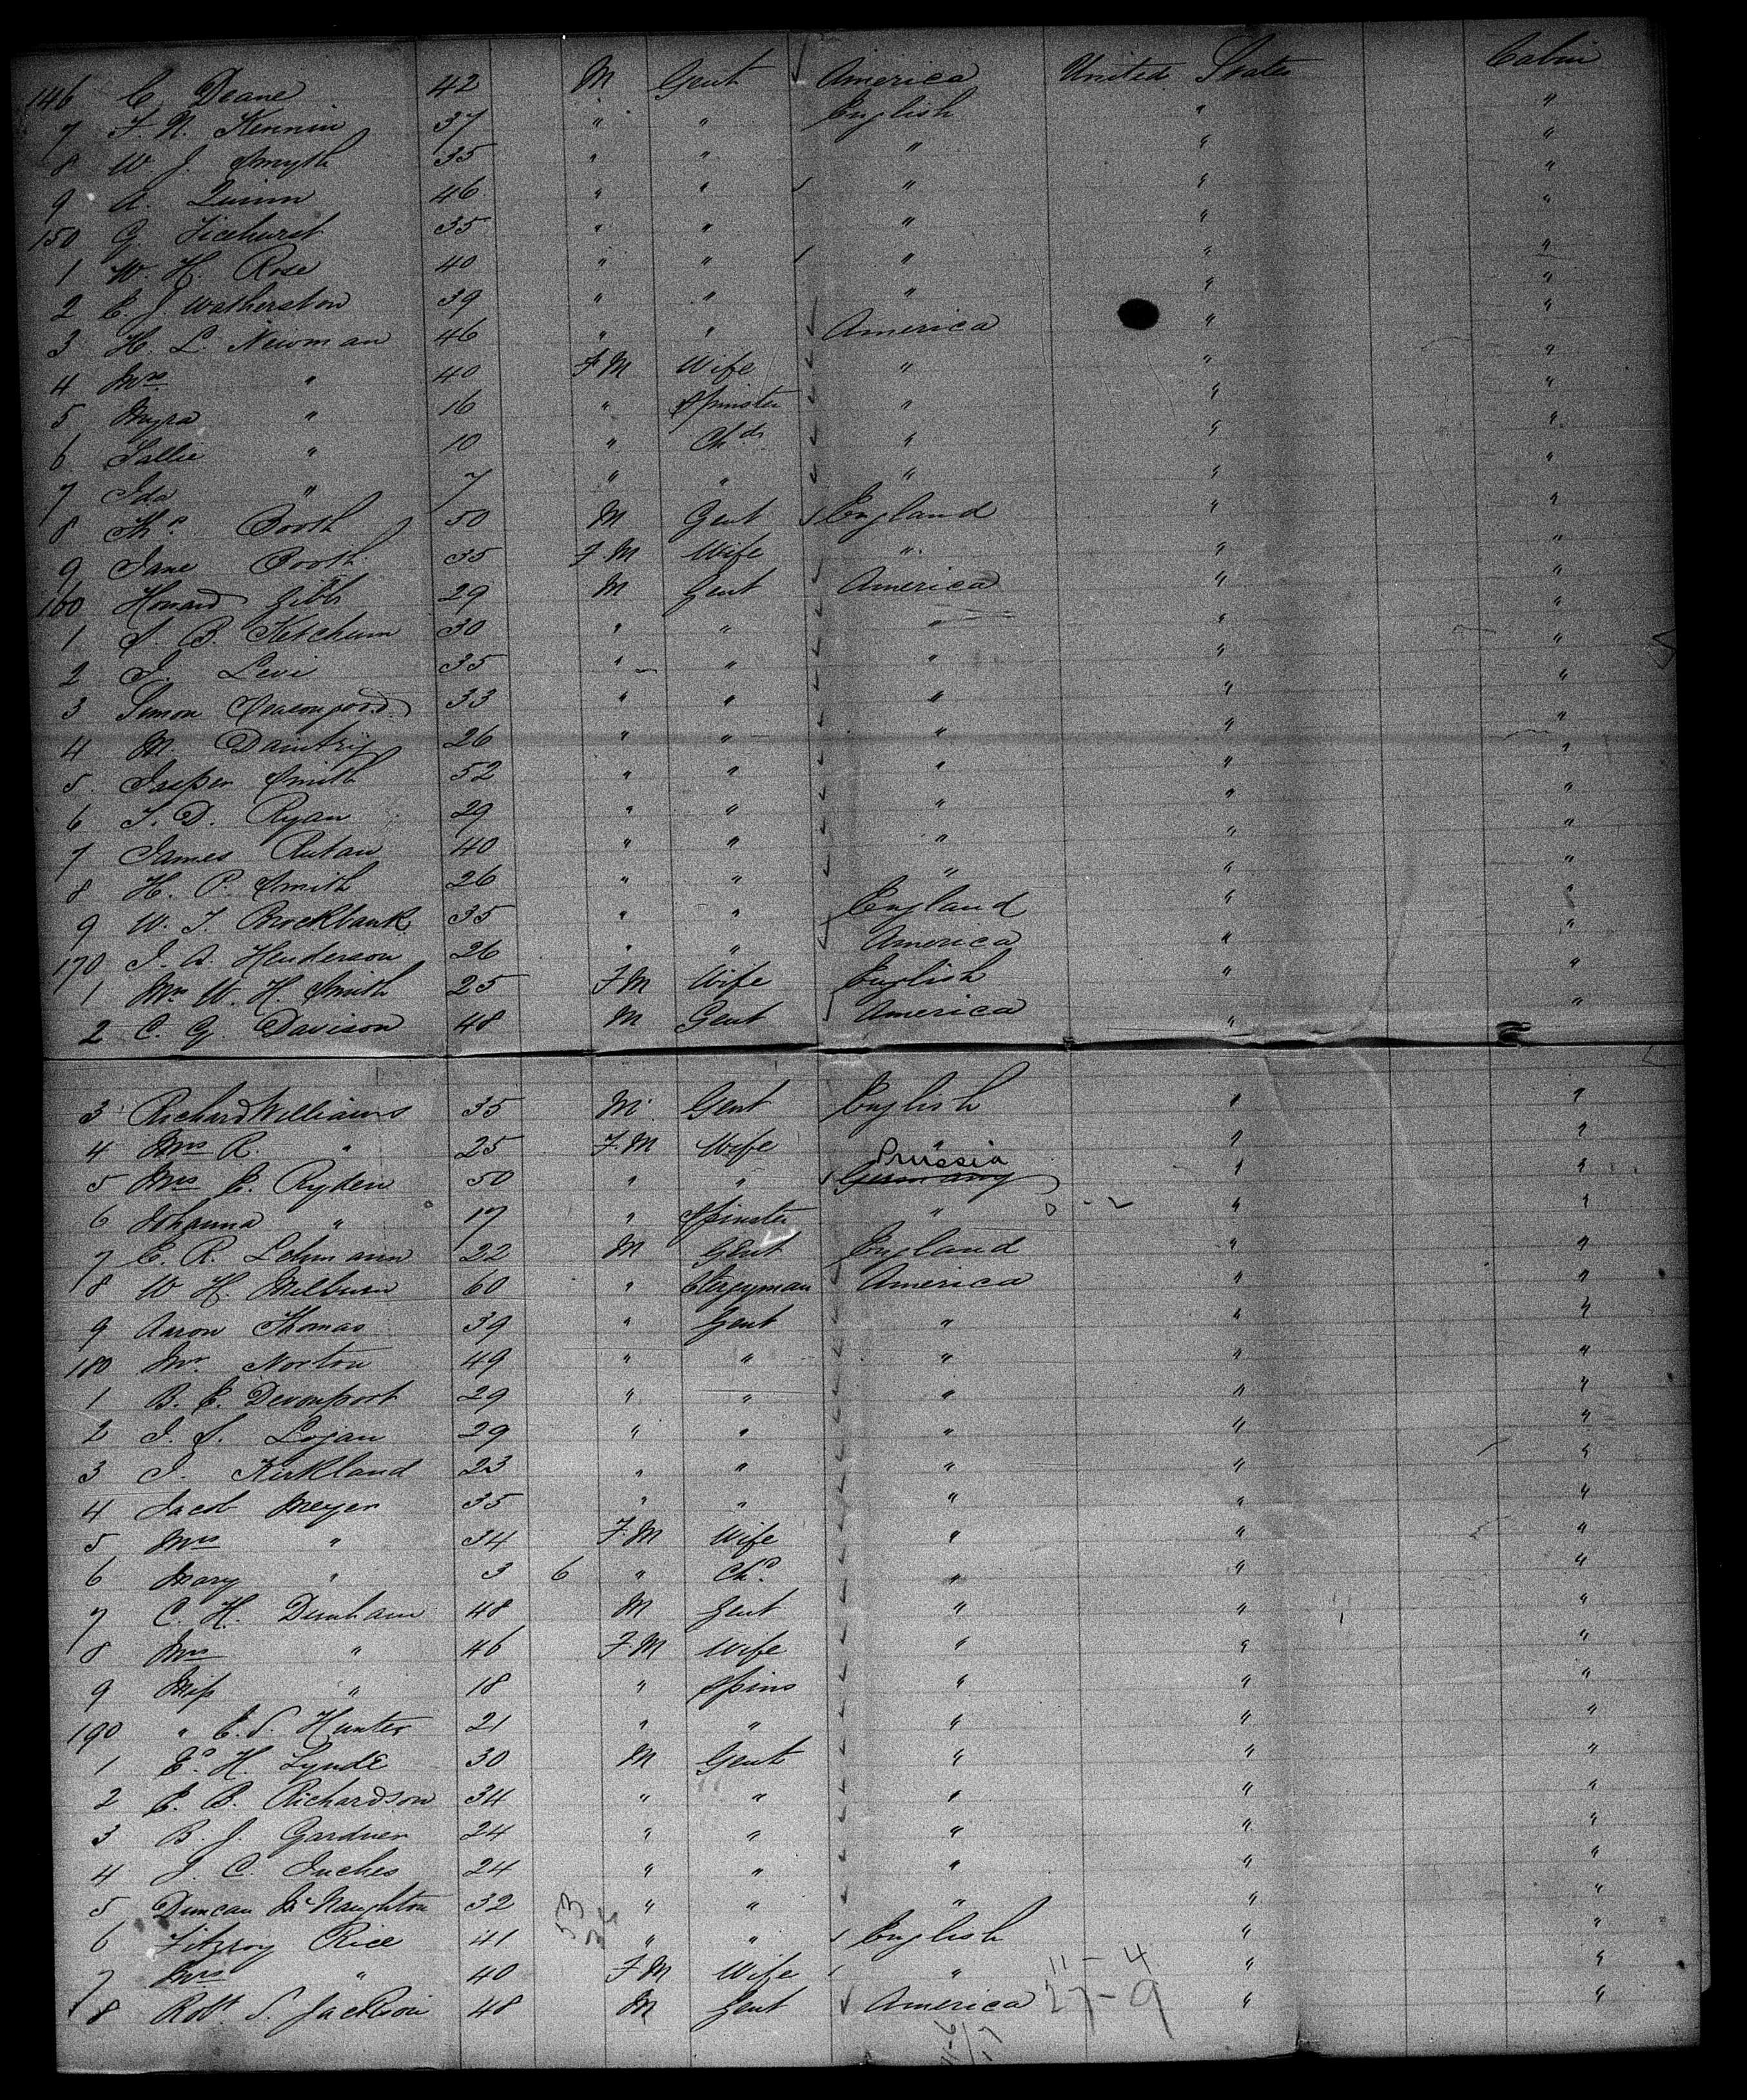 146 C. Deane 42 M Gent America United States Cabin
7 F. N. Kennin 37 " " English " "
8 W. J. Smyth 35 " " " " "
9 A. Quinn 46 " " " " "
150 G. Ticehurst 35 " " " " "
1 W. H. Rose 40 " " " " "
2 E. J. Watherston 39 " " " " "
3 H. L. Newman 46 " " America " "
4 Mrs " 40 F M Wife " " "
5 Myra " 16 " Spinster " " "
6 Sallie " 10 " Chd. " " "
7 Ida " 7 " " " " "
8 Ths Booth 50 M Gent England " "
9 Jane Booth 35 F. M Wife " " "
160 Howard Gibb 29 M Gent America " "
1 S. B. Ketchum 30 " " " " "
2 J. Levi 35 " " " " "
3 Simon 33 " " " " "
4 M. Daintry 26 " " " " "
5 Jasper Smith 52 " " " " "
6 T. D. Ryan 29 " " " " "
7 James Rutan 40 " " " " "
8 H. P. Smith 26 " " " " "
9 W. T. Brockbank 35 " " England " "
170 J. A. Henderson 26 " " America " "
1 Mrs W. H. Smith 25 F M Wife English " "
2 C. G. Davison 48 M Gent America " "
3 Richard Williams 35 M Gent English " "
4 Mrs R. " 25 F. M Wife " " "
Prussia
5 Mrs E. Ryden 50 " " Germany " "
6 Johanna " 17 " Spinster " " "
7 E. R. Lehmann 22 M Gent England " "
8 W H. Milburn 60 " Clergyman America " "
9 Aaron Thomas 39 " Gent " " "
180 Mr. Norton 49 " " " " "
1 B. E. Devonport 29 " " " " "
2 J. S. Logan 29 " " " " "
3 J. Kirkland 23 " " " " "
4 Jacob Meyer 35 " " " " "
5 Mrs " 34 F. M Wife " " "
6 Mary " 3 6 " Chd. " " "
7 C. H. Dunham 48 M Gent " " "
8 Mrs " 46 F. M Wife " " "
9 Miss " 18 " Spins " " "
190 " E. S. Hunter 21 " " " " "
1 Ed. H. Lynde 30 M Gent " " "
2 E. B. Richardson 34 " " " " "
3 B. J. Gardner 24 " " " " "
4 J. C. Inches 24 " " " " "
5 Duncan McNaughton 32 " " " " "
6 Fitzroy Rice 41 " " English " "
7 Mrs " 40 F M Wife " 11 - 4 " "
8 Robt. S. Jackson 48 M Gent America 27 - 9 " "